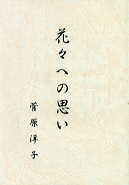 花々への思い
菅原洋子